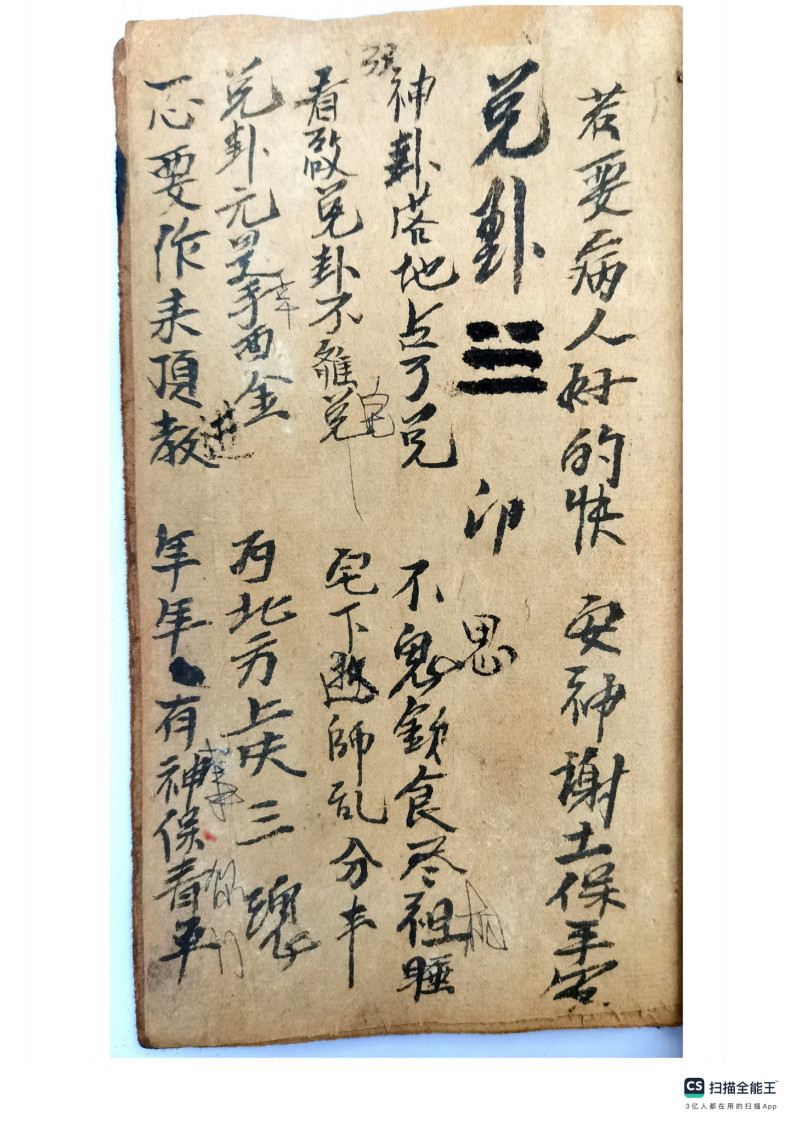 若要病人好的快 安神謝土保平安
兑卦 ☱ 印 思
神卦落地占了兑 不 鬼 食尽祖睡
看啟兑卦不離兑 宅下 師乱分
兑卦元是 西金 西北方上 三魂
心要作来頂教 年年有神保青平
扫描全能王
3亿人都在用的扫描App